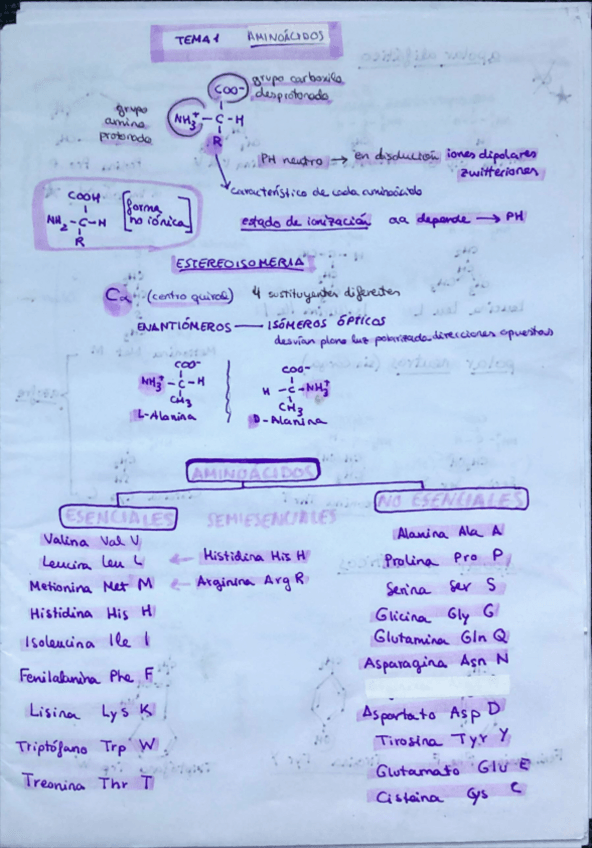 TEMA 1 AMINOÁCIDOS
COO-
grupo carboxilo
desprotonado
grupo
amino
protonado
NH3+ - C - H
R
PH neutro → en disolución iones dipolares
zwitteriones
característico de cada aminoácido
COOH
NH2 - C - H
R
[forma
no iónica]
estado de ionización aa depende → PH
ESTEREOISOMERIA
Cα (centro quiral) 4 sustituyentes diferentes
ENANTIÓMEROS — ISÓMEROS ÓPTICOS
desvían plano luz polarizada direcciones opuestas
COO-
NH3+ - C - H
CH3
L-Alanina
COO-
H - C - NH3+
CH3
D-Alanina
AMINOÁCIDOS
ESENCIALES SEMIESENCIALES NO ESENCIALES
Valina Val V
Leucina Leu L
Metionina Met M
Histidina His H
Isoleucina Ile I
Fenilalanina Phe F
Lisina Lys K
Triptófano Trp W
Treonina Thr T
← Histidina His H
← Arginina Arg R
Alanina Ala A
Prolina Pro P
Serina Ser S
Glicina Gly G
Glutamina Gln Q
Asparagina Asn N
Aspartato Asp D
Tirosina Tyr Y
Glutamato Glu E
Cisteina Cys C